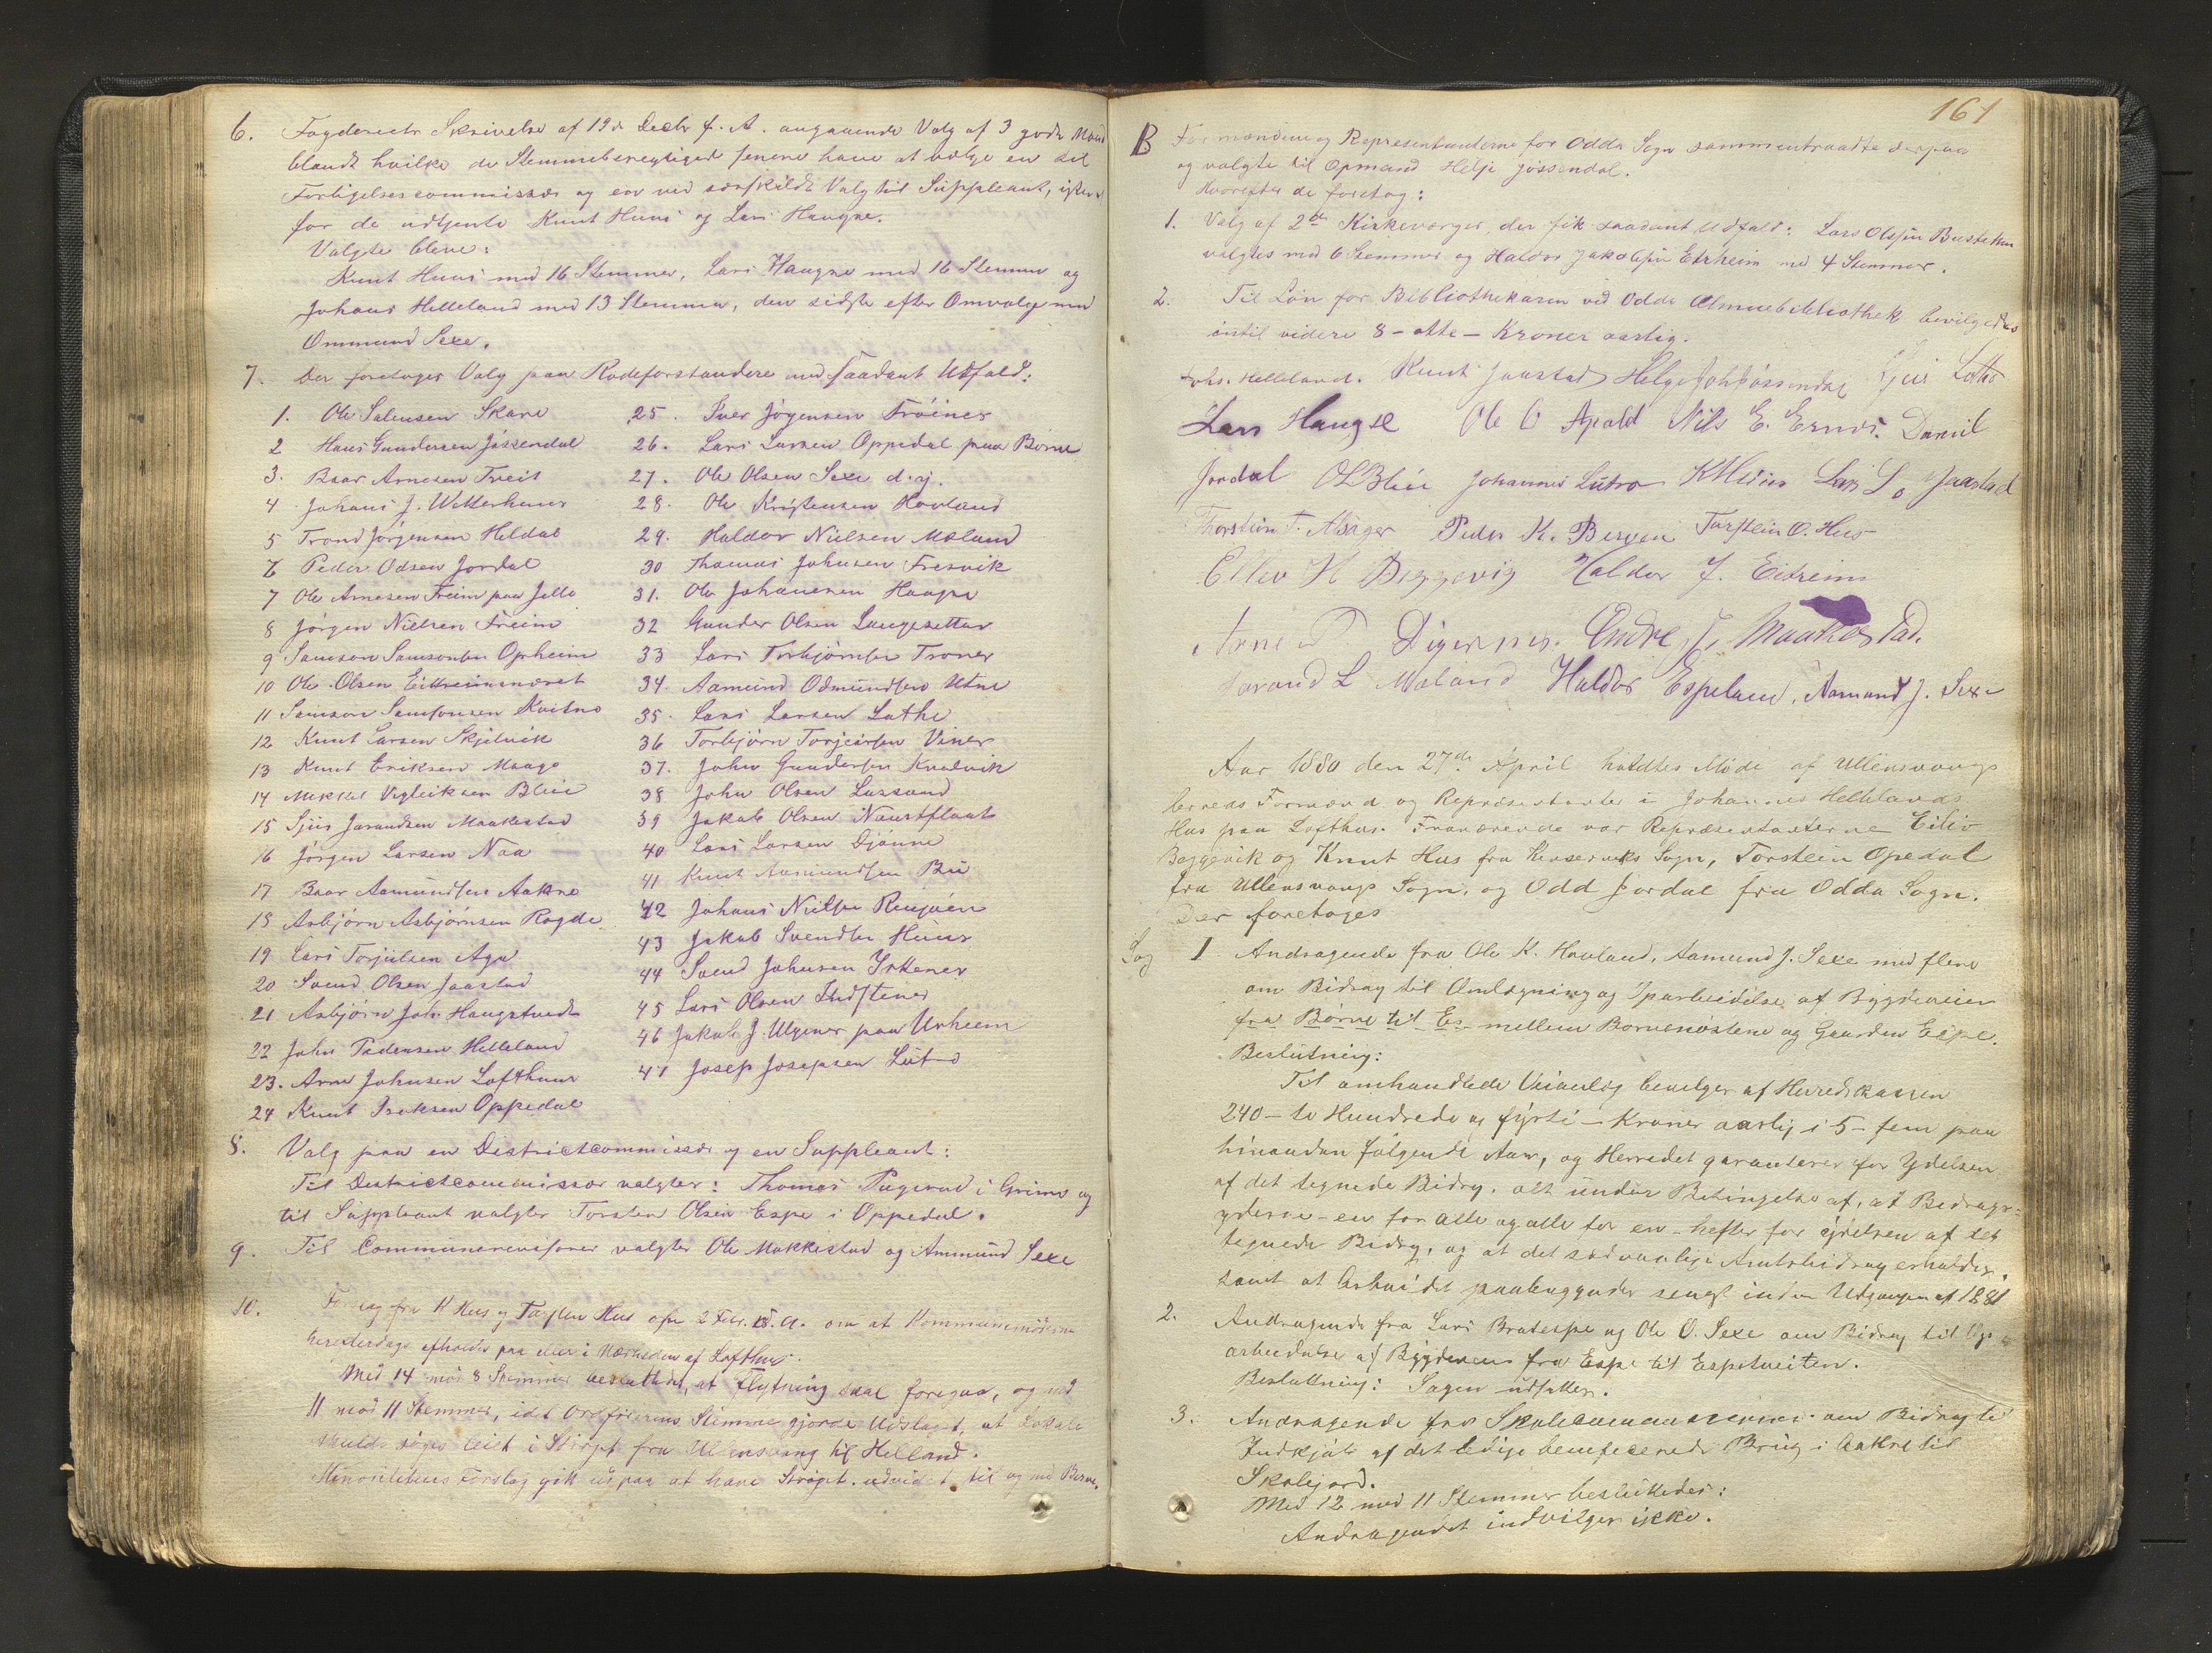 6. Fogderiets Skrivelse af 19de Decbr f. A. angaaende Valg af 3 gode Mænd
blandt hvilke de Stemmeberegtigede senere have at vælge en til
Forligelsescommissær og een ved særskildt Valg til Suppleant, istedet
for de udtjente Knut Huus og Lars Haugse.
Valgte bleve:
Knut Huus med 16 Stemmer, Lars Haugse med 16 Stemmer og
Johans Helleland med 13 Stemmer, den sidste efter Omvalg med
Ommund Sexe.
7. Der foretoges Valg paa Rodeforstandere med saadant Udfald:
1. Ole Salmsen Skare
2 Hans Gundersen Jøssendal
3. Baar Arnesen Freit
4 Johans J. Wetterhuus
5 Trond Jørgensen Hildal
6 Peder Odsen Jordal
7 Ole Arnesen Freim paa Jelle
8 Jørgen Nielsen Freim
9 Samson Samsonsen Opheim
10 Ole Olsen Eittreimsnæset
11 Samson Samsonsen Kvitno
12 Knut Larsen Skjelvik
13 Knut Eriksen Maage
14 Mikkel Vigleiksen Bleie
15 Sjur Jarandsen Maakestad
16 Jørgen Larsen Naa
17 Baar Aamundsen Aakre
18 Asbjørn Asbjørnsen Rogde
19 Lars Torjulsen Aga
20 Svend Olsen Jaastad
21 Asbjørn Joh. Haugstvedt
22 John Pedersen Helleland
23. Arne Johnsen Lofthuus
24 Knut Isaksen Oppedal
25. Iver Jørgensen Frøines
26. Lars Larsen Oppedal paa Børve
27. Ole Olsen Sexe d.y.
28. Ole Kristensen Hovland
29. Haldor Nielsen Mæland
30 Thomas Johnsen Fresvik
31. Ole Johannesen Haaps
32 Gunder Olsen Langesetter
33 Lars Torbjørnsen Trones
34. Aamund Odmundsen Utne
35. Lars Larsen Lothe
36 Torbjørn Torgeirsen Vines
37. John Gundersen Kvalvik
38 John Olsen Lussand
39 Jakob Olsen Naustflaat
40 Lars Larsen Djønne
41 Knut Aamundsen Bu
42 Johans Nielsen
43 Jakob Svendsen Huus
44 Svend Johnsen Ystenes
45 Lars Olsen Indstenes
46 Jakob J. Ulgenes paa Urheim
47 Josep Josepsen Lutro
8. Valg paa en Districtscommissær og en Suppleant:
Til Districtscommissær valgtes: Thomas Pugerud i Grimo og
til Suppleant valgtes Torsten Olsen Espe i Oppedal.
9. Til Communerevisorer valgtes Ole Makkestad og Ammund Sexe
10. Forslag fra K Hus og Torsten Hus af 2 Febr. d. A. om at Kommunemøderne
herefterdags afholdes paa eller i Nærheden af Lofthus.
Med 14 mod 8 Stemmer besluttedes, at Flytning skal foregaa, og med
11 mod 11 Stemmer, idet Ordførerens Stemme gjorde Udslaget, at Lokale
skulde søges leiet i Strøget fra Ullensvang til Helland.
Minoritetens Forslag gik ud paa at have Strøget udvidet til og med Børve.
161
B Formændene og Repræsentanterne for Odda Sogn sammentraadte derpaa
og valgte til Opmand Helje Jøssendal.
Hvorefter de foretog:
1. Valg af 2de Kirkeværger, der fik saadant Udfald: Lars Olsen Bustetun
valgtes med 6 Stemmer og Haldor Jakobsen Eitrheim med 4 Stemmer.
2. Til Løn for Bibliothekaren ved Odda Almuebibliothek bevilgedes
indtil videre 8 - otte - Kroner aarlig.
Johs. Helleland. Knut Jaastad Helge Joh Jøssendal Sjur Lothe
Lars Haugse Ole O Apold Nils E. Ernes. Daniel
Jordal OL Bleie Johannes Lutro K Huus Lars L. Jaastad
Thorstein T. Alsager Peder K. Berven Torstein O. Hus
Eilev H Beggevig Haldor J. Eitreim
Arne Digernes. Endre J. Maakestad.
Jarand L Mæland Haldor Espeland. Aamund J. Sexe
Aar 1880 den 27de April holdtes Møde af Ullensvangs
herreds Formænd og Repræsentanter i Johannes Hellelands
Hus paa Lofthus. Fraværende var Repræsentanterne Eiliv
Beggevik og Knut Hus fra Kinserviks Sogn, Torstein Opedal
fra Ullensvangs Sogn, og Odd Jordal fra Odda Sogn.
Der foretoges
Sag 1 Andragende fra Ole K. Hovland, Aamund J. Sexe med flere
om Bidrag til Omlægning og Oparbeidelse af Bygdeveien
fra Børve til Es mellem Børvenøstene og Gaarden Espe.
Beslutning:
Til omhandlede Veianlæg bevilges af Herredskassen
240 - to Hundrede og fyrti - Kroner aarlig i 5 - fem paa
hinanden følgende Aar, og Herredet garanterer for Ydelsen
af det tegnede Bidrag, alt under Betingelse af, at Bidrags=
yderne - en for alle og alle for en - hefter for ydelsen af det
tegnede Bidrag, og at det sædvanlige Amtsbidrag erholdes,
samt at Arbeidet paabegyndes senest inden Udgangen af 1881
2. Andragende fra Lars Bratespe og Ole O. Sexe om Bidrag til Op=
arbeidelse af Bygdeveien fra Espe til Espetveiten.
Beslutning: Sagen udsættes.
3. Andragende fra Skolecommissionen om Bidrag til
Indkjøb af det ledige beneficerede Brug i Aakre til
Skolejord.
Med 12 mod 11 Stemmer besluttedes:
Andragendet indvilges ikke.